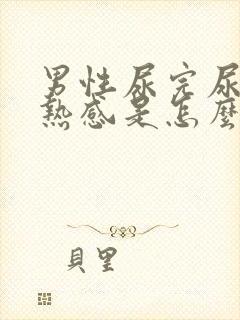 男性尿完尿
熱感是怎麼
貝里